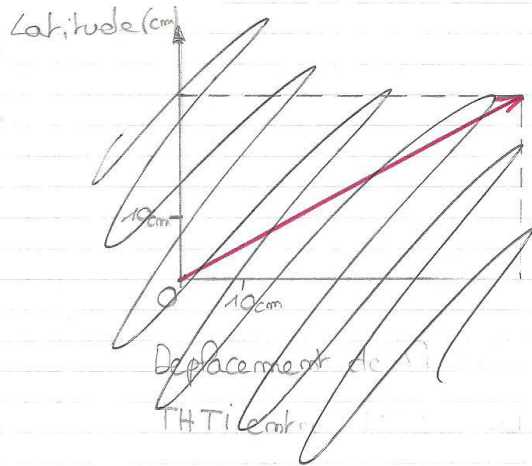 Latitude (cm)
10cm
O
10cm
Deplacement de
THTi entre